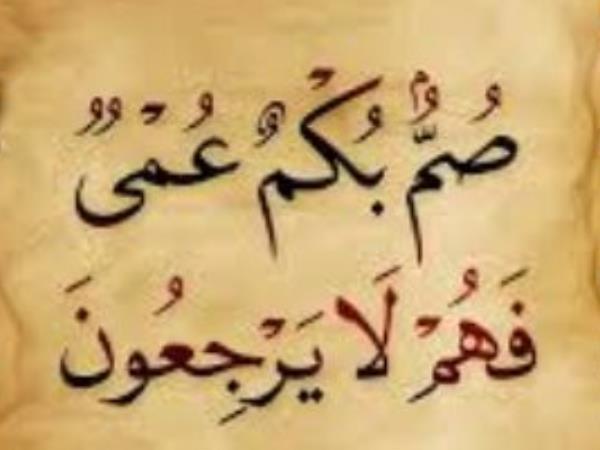 صُمٌّ بُكْمٌ عُمْىٌ
فَهُمْ لَا يَرْجِعُونَ